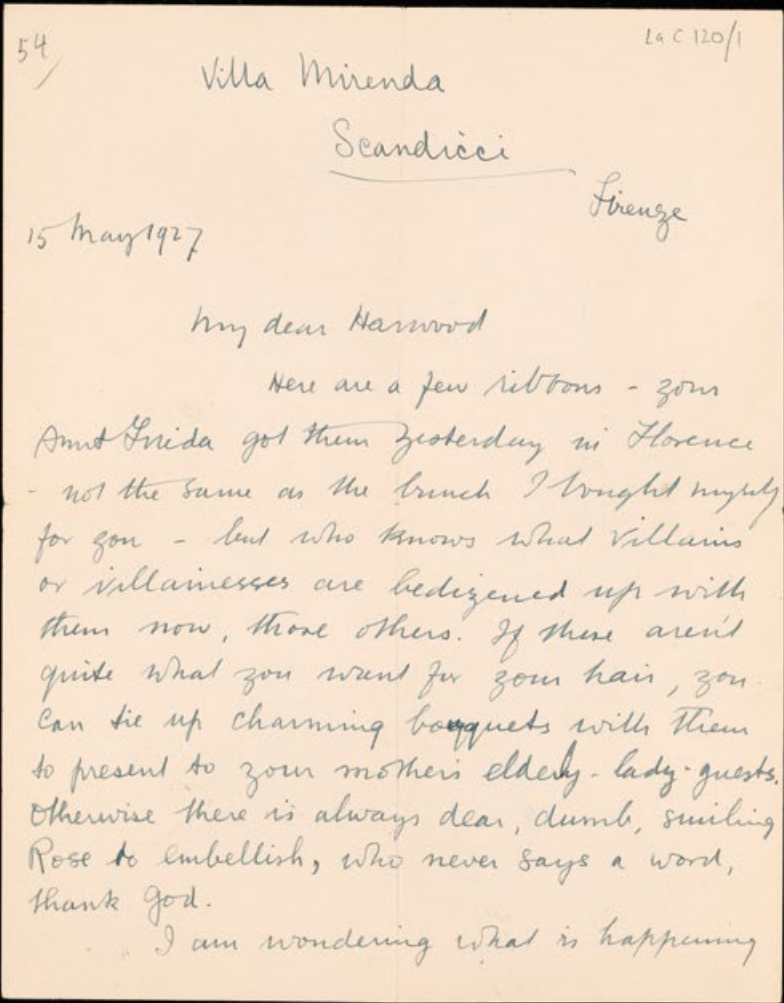 54/
La C 120/1
Villa Mirenda
Scandicci
Firenze
15 May 1927
My dear Harwood
Here are a few ribbons - your
Aunt Frieda got them yesterday in Florence
- not the same as the bunch I bought myself
for you - but who knows what villains
or villainesses are bedizened up with
them now, those others. If these aren't
quite what you want for your hair, you
can tie up charming bouquets with them
to present to your mother's elderly-lady-guests.
Otherwise there is always dear, dumb, smiling
Rose to embellish, who never says a word,
thank God.
I am wondering what is happening